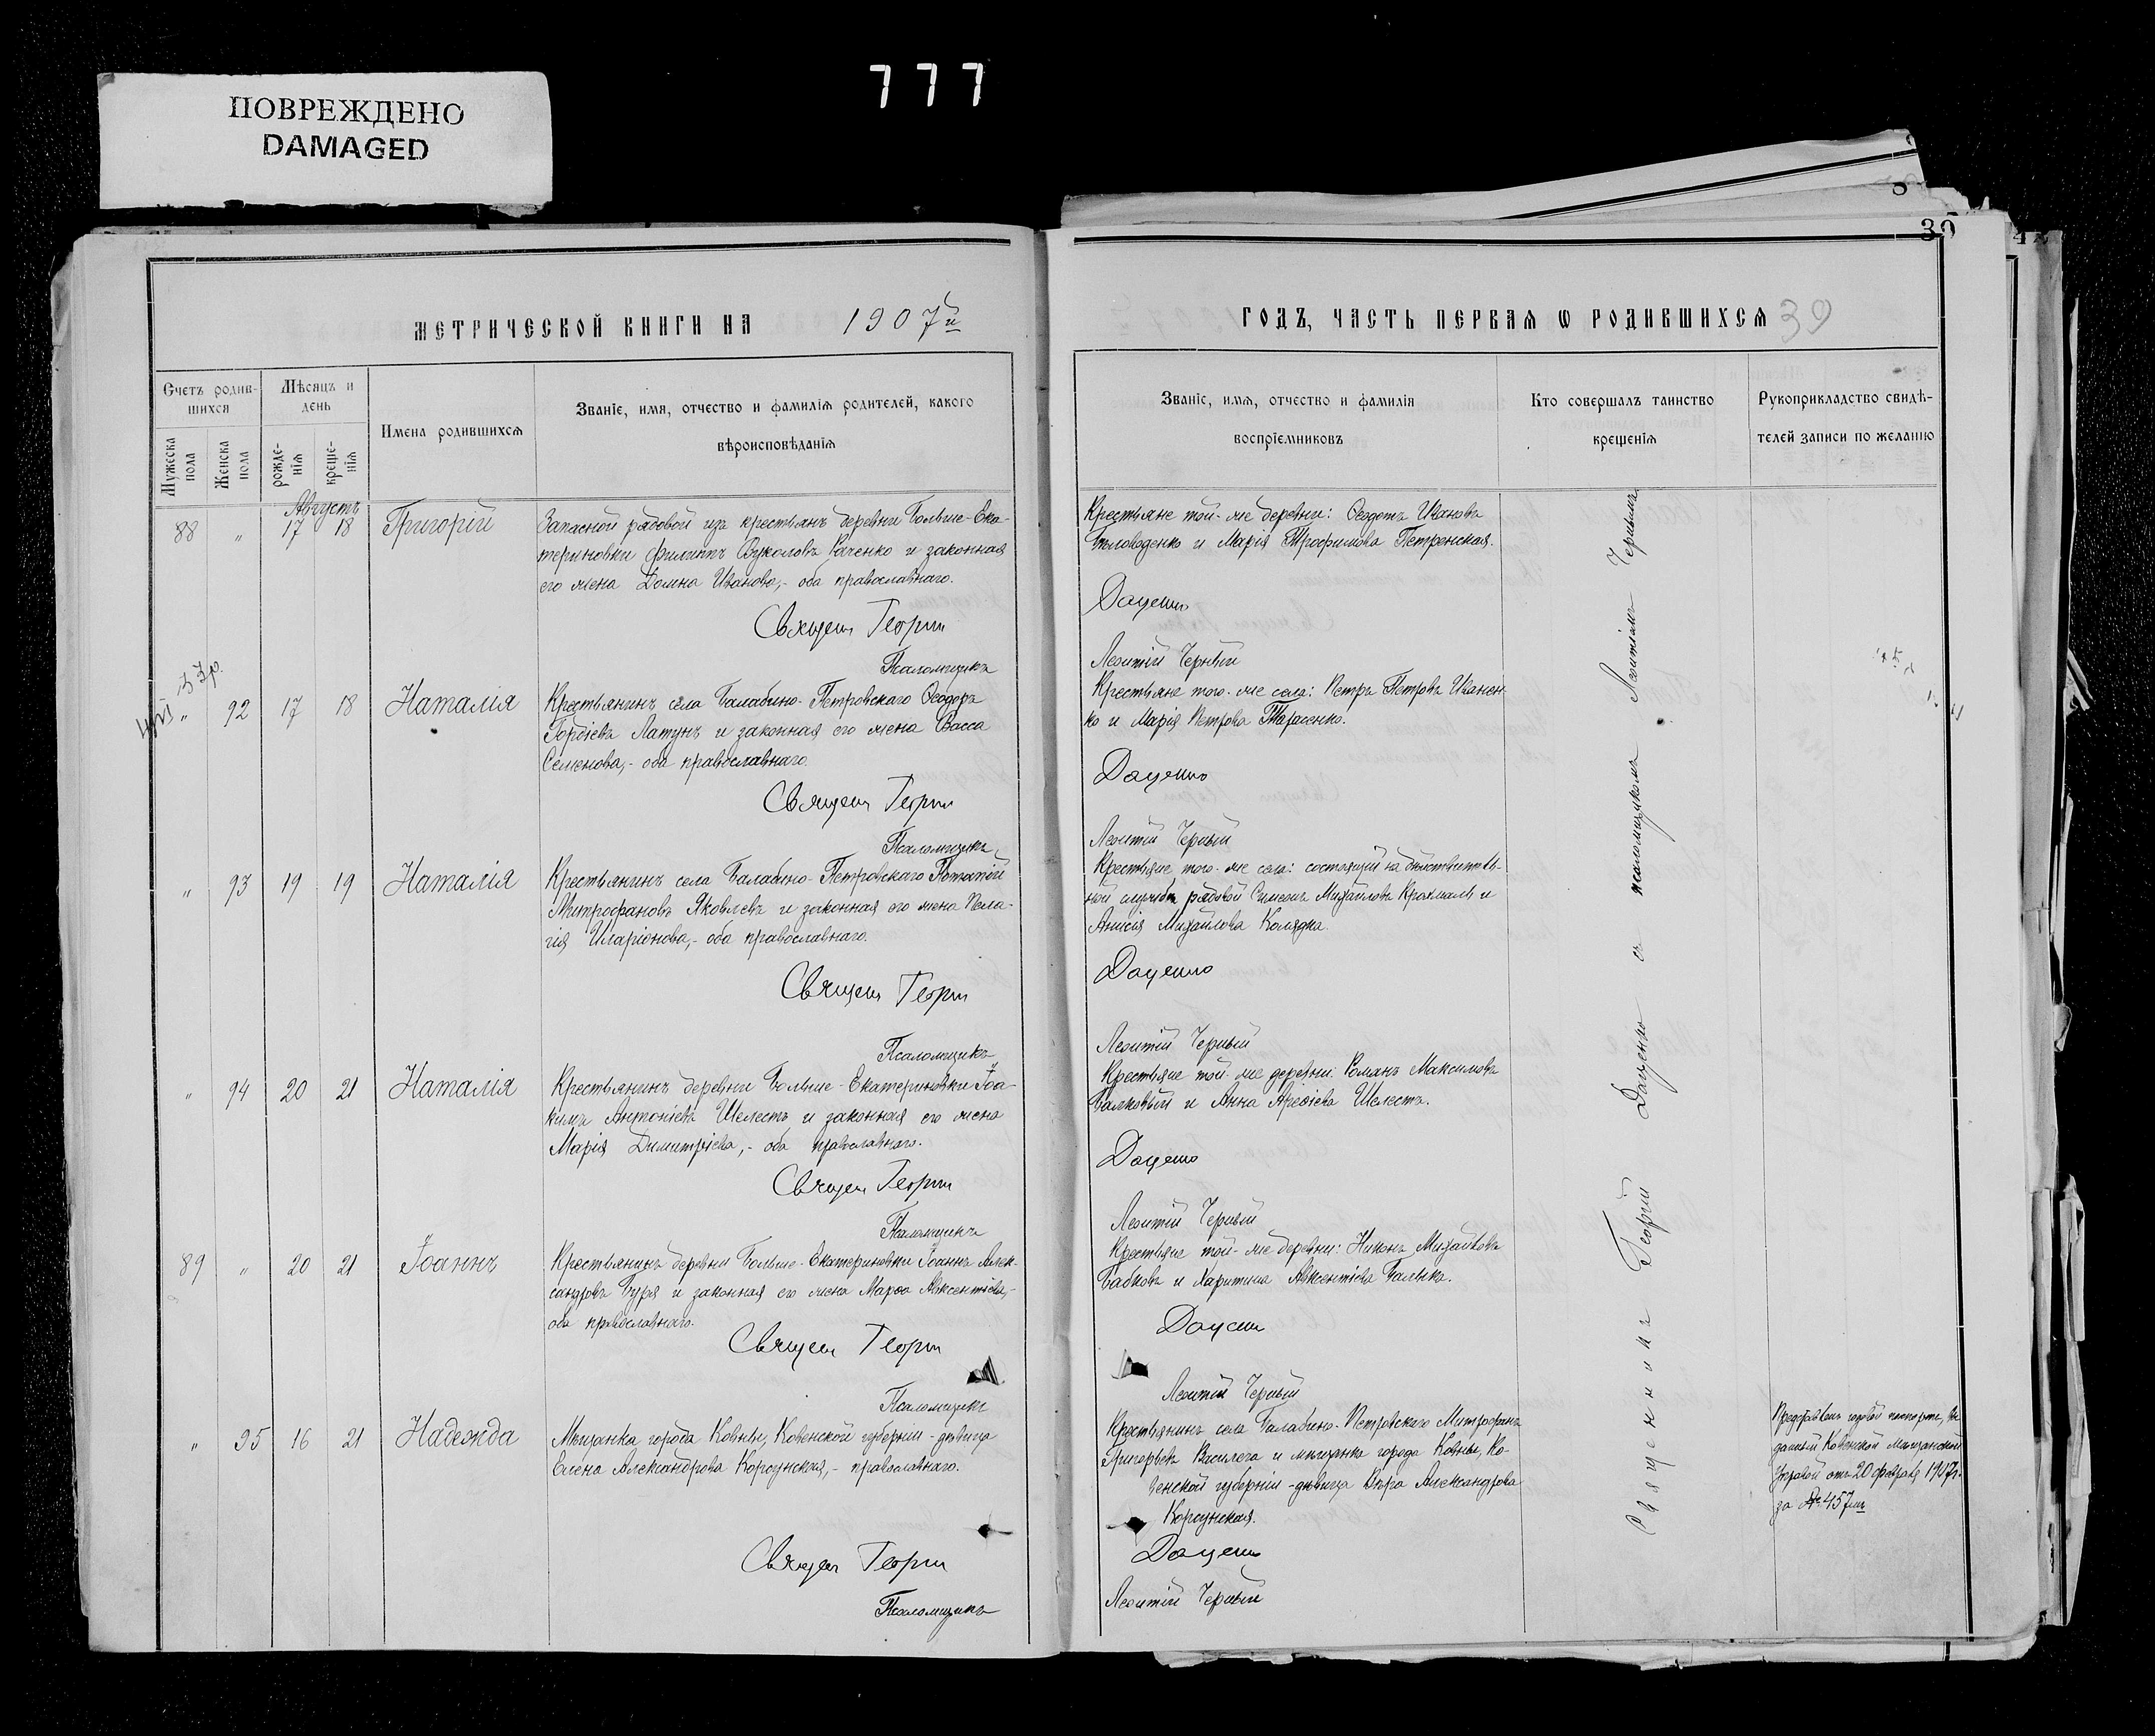 777
ПОВРЕЖДЕНО
DAMAGED
39
МЕТРИЧЕСКОЙ КНИГИ НА 1907й
ГОДЪ, ЧАСТЬ ПЕРВАЯ Ѡ РОДИВШИХСЯ 39
Счетъ родив-
шихся
Мужеска пола
Женска пола
Мѣсяцъ и
день
рожде-
нія
креще-
нія
Имена родившихся
Званіе, имя, отчество и фамилія родителей, какого
вѣроисповѣданія
Званіе, имя, отчество и фамилія
воспріемниковъ
Кто совершалъ таинство
крещенія
Рукоприкладство свидѣ-
телей записи по желанію
Августъ
88 " 17 18 Григорій
Запасной рядовой изъ крестьянъ деревни Больше-Ека-
териновки Филиппъ Вуколовъ Раченко и законная
его жена Домна Иванова,- оба православнаго.
Священ Георги
Псаломщикъ
Крестьяне той-же деревни: Ѳеодотъ Ивановъ
и Марія Трофимова Петренская.
Даценко
Леонтій Черный
" 92 17 18 Наталія
Крестьянинъ села Балабино-Петровскаго Ѳеодоръ
Гордіевъ Латунъ и законная его жена Васса
Семенова,- оба православнаго.
Священ Георги
Псаломщикъ
Крестьяне того-же села: Петръ Петровъ Иванен-
ко и Марія Петрова Тарасенко.
Даценко
Леонтій Черный
" 93 19 19 Наталія
Крестьянинъ села Балабино-Петровскаго Потапій
Митрофановъ Яковлевъ и законная его жена Пела-
гія Иларіонова,- оба православнаго.
Священ Георги
Псаломщикъ
Крестьяне того-же села: состоящій на дѣйствитель-
ной службѣ рядовой Симеонъ Михайловъ Крохмаль и
Анисія Михайлова Колядка.
Даценко
Леонтій Черный
" 94 20 21 Наталія
Крестьянинъ деревни Больше-Екатериновки Іоа-
кимъ Антоніевъ Шелестъ и законная его жена
Марія Димитріева,- оба православнаго.
Священ Георги
Псаломщикъ
Крестьяне той-же деревни: Романъ Максимовъ
Балковый и Анна Арефіева Шелестъ.
Даценко
Леонтій Черный
89 " 20 21 Іоаннъ
Крестьянинъ деревни Больше-Екатериновки Іоаннъ Алек-
сандровъ Буря и законная его жена Марѳа Авксентіева,-
оба православнаго.
Священ Георги
Псаломщикъ
Крестьяне той-же деревни: Никонъ Михайловъ
Бабковъ и Харитина Авксентіева Балыка.
Даценко
Леонтій Черный
" 95 16 21 Надежда
Мѣщанка города Ковны, Ковенской губерніи-дѣвица
Елена Александрова Корсунская,- православнаго.
Священ Георги
Псаломщикъ
Крестьянинъ села Балабино-Петровскаго Митрофанъ
Григорьевъ Василега и мѣщанка города Ковны, Ко-
венской губерніи-дѣвица Вѣра Александрова
Корсунская.
Даценко
Леонтій Черный
Священникъ Георгій Даценко съ псаломщикомъ Леонтіемъ Чернымъ
Представленъ годовой паспортъ, вы-
данный Ковенской Мѣщанской
Управой отъ 20 февраля 1907г.
за № 457мъ